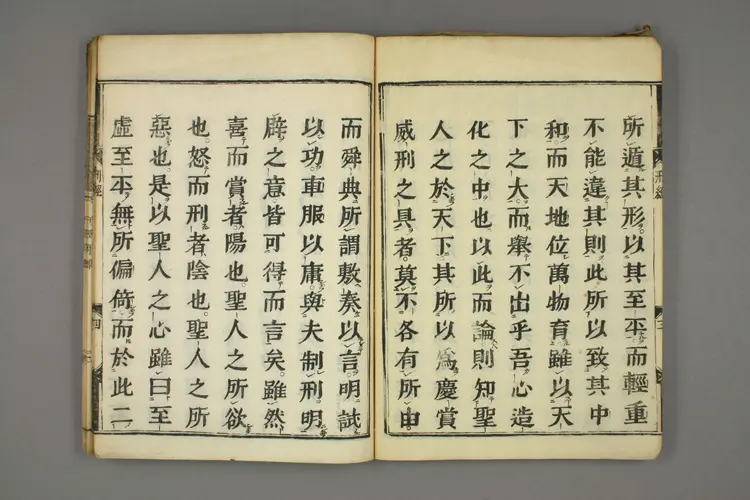 所遁其形。以其至平。而輕重
不能違其則。此所以致其中
和。而天地位。萬物育。雖以天
下之大。而擧不出乎吾心造
化之中也。以此而論。則知聖
人之於天下。其所以爲慶賞
威刑之具者。莫不各有所由。
三
而舜典所謂敷奏以言。明試
以功。車服以庸。與夫制刑明
辟之意。皆可得而言矣。雖然
喜而賞者。陽也。聖人之所欲
也。怒而刑者。陰也。聖人之所
惡也。是以聖人之心。雖曰至
虛至平。無所偏倚。而於此二
四